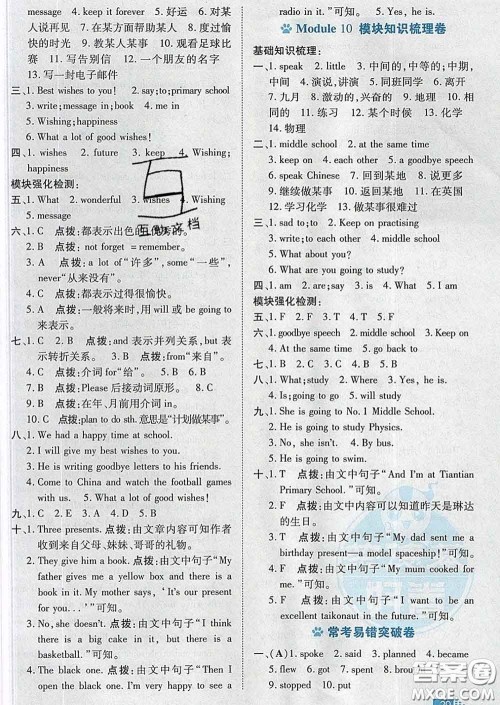 人 4. keep it forever 5. 好运 6. 对某
人来说 7. 在某方面帮助某人 8. 度过愉
快的时光 9. 教某人某事 10. 观看足球比
赛 11. 写告别信 12. 一个朋友的名字
13. 写一封电子邮件
三、1. Best wishes to you! 2. say;to;primary school
3. write;message in;book 4. me in
5. Wishing;happiness
6. What a lot of good wishes!
四、1. wishes 2. future 3. keep 4. Wishing;
happiness
模块强化检测：
五、1. What 2. wonderful 3. wishes 4. Wishing
5. message
六、1. C 点拨：都表示出色的
2. B 点拨：not forget = remember。
3. A 点拨：a lot of“许多”,some“一些”,
never“从来没有”。
4. C 点拨：都表示过得很愉快。
5. A 点拨：一般将来时,用 will 或 be going to
来表示。
七、1. C 点拨：and 表示并列关系,but 表
示转折关系。 3. B 点拨：from“来自”。
4. A 5. B 6. C
7. B 点拨：介词 for“给”。
8. B 点拨：Please 后接动词原形。
9. B 点拨：在年、月前用介词 in。
10. C 点拨：plan to do sth. 意思是“计划做某事”。
八、1. We had a happy time at school.
2. I will give my best wishes to you.
3. He is writing goodbye letters to his friends.
4. Come to China and watch the football games
with us. 5. What a lot of good wishes!
九、1. C 2. E 3. A 4. D 5. B
十、1. Three presents. 点拨：由文章内容可知作者
收到来自父母、妹妹、哥哥的礼物。
2. They give him a book. 点拨：由文中句子“My
father gives me a yellow box and there is
a book in it. My mother says, ‘It's our present
for you.’...”可知。
3. No, she doesn't. 点拨：由文中句子“I think
there is a big cake in it, but there is
a basketball.”可知。
4. The black one. 点拨：由文中句子“Then I
open the black one. I'm very happy to see a
radio in it.”可知。 5. Yes, he is.
Module 10 模块知识梳理卷
基础知识梳理：
一、1. speak 2. little 3. 中间的,中等的;中期,
中间 4. 演说,讲演 5. 同班同学 6. 离开
7. 九月 8. 激动的,兴奋的 9. 地理 10. 相
同的 11. 练习 12. 某个时候 13. 化学
14. 物理
二、1. middle school 2. at the same time
3. keep on 4. each other 5. a goodbye speech
6. speak Chinese 7. 回到某地 8. 说再见
9. 继续做某事 10. 离开某地 11. 在英国
12. 学习化学 13. 做某事很难过
三、1. sad to;to 2. Keep on practising
3. write;to each other 4. will study
5. What are you going to study?
四、1. am 2. is 3. are 4. is 5. are
模块强化检测：
五、1. C 2. E 3. A 4. B 5. D
六、1. goodbye speech 2. middle school 3. Keep on
4. At the same time 5. go back to
七、1. B 2. C 3. A 4. B 5. C
八、1. What;study 2. When 3. Yes, he is.
4. Is;going to 5. will study
九、1. She is going to No. 1 Middle School.
2. She is going to study Physics.
3. No, she isn't. 4. By bus.
5. She is going at 8:00.
十、1. T 点拨：由文中句子“And I'm at Tiantian
Primary School.”可知。
2. F 点拨：由文中句子可以知道昨天是琳达
的生日。
3. T 点拨：由文中句子“My dad sent me a
birthday present—a model spaceship!”可知。
4. F 点拨：由文中句子“My mum cooked for
me.”可知。
5. F 点拨：由文中句子“I want to be an
excellent taikonaut in the future.”可知。
常考易错突破卷
一、(A) 1. spoke 2. said 3. planned 4. became
5. flew 6. got 7. began 8. went
9. stopped 10. put